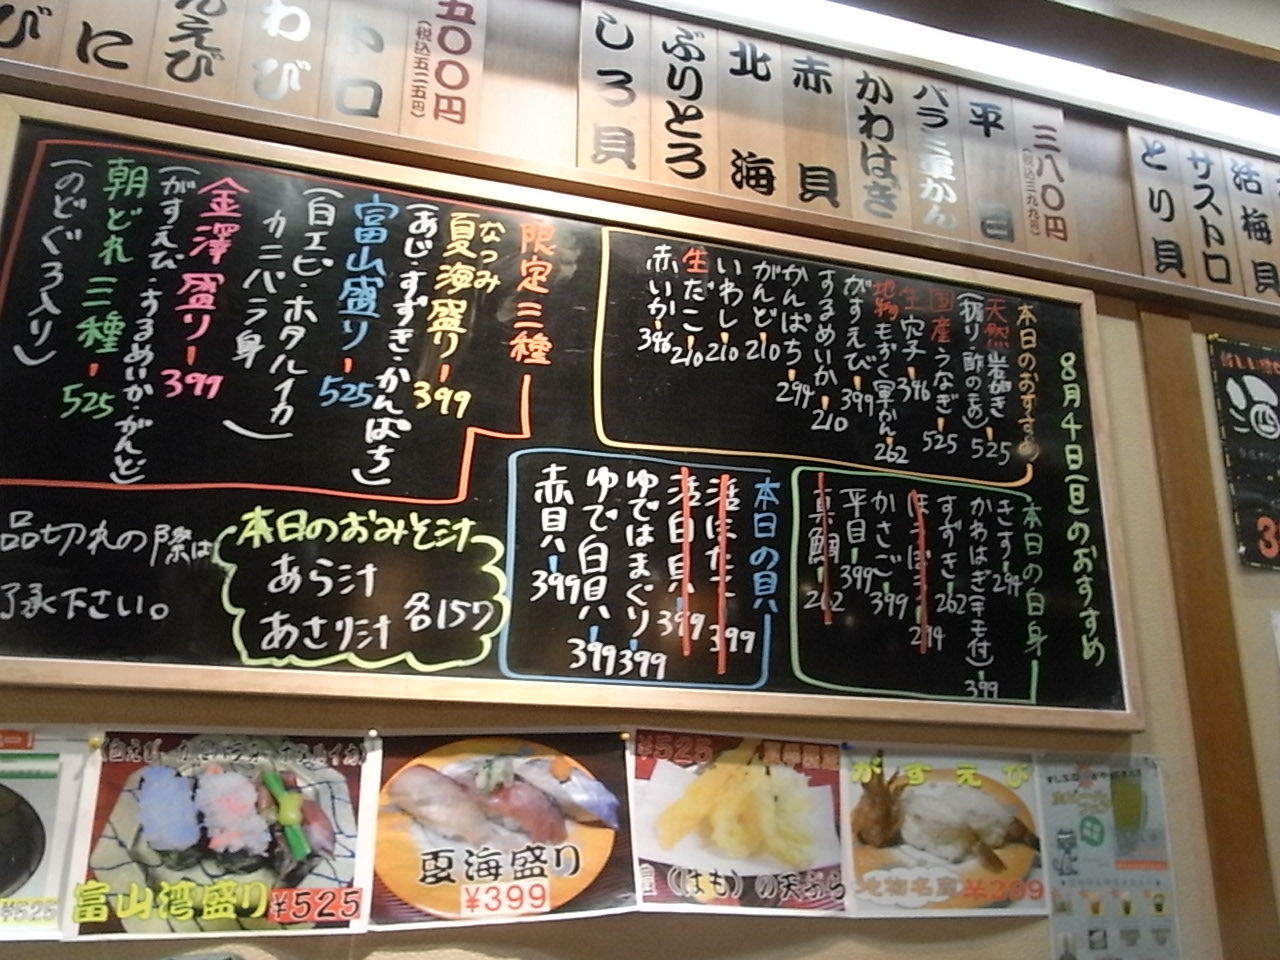 五〇〇円
(税込五二五円)
トロ
わび
えび
に
び
三八〇円
(税込三九九円)
平目
バラ三軍かん
かわはぎ
赤貝
北海
ぶりとろ
しろ貝
活梅貝
サストロ
とり貝
8月4日(日)のおすすめ
本日のおすすめ
天然岩がき 525
(握り酢のもの)
国産うなぎ 525
生穴子 346
地物もずく軍かん 262
がすえび 399
するめいか 210
かんぱち 294
がんど 210
いわし 210
生だこ 210
赤いか 346
限定三種
なつみ
夏海盛り 399
(あじ・すずき・かんぱち)
富山盛り 525
(白エビ・ホタルイカ
カニバラ身)
金澤盛り 399
(がすえび・するめいか・がんど)
朝どれ三種 525
(のどぐろ入り)
本日の白身
きす 294
かわはぎ(キモ付) 399
すずき 262
ほうぼう 294
かさご 399
平目 399
真鯛 262
本日の貝
活ほたて 399
活白貝 399
ゆではまぐり 399
ゆで白貝 399
赤貝 399
本日のおみそ汁
あら汁
あさり汁
各157
品切れの際は
了承下さい。
富山湾盛り ¥525
夏海盛り
¥399
¥525
(はも)の天ぷら
がすえび
地物名産 ¥399
¥525